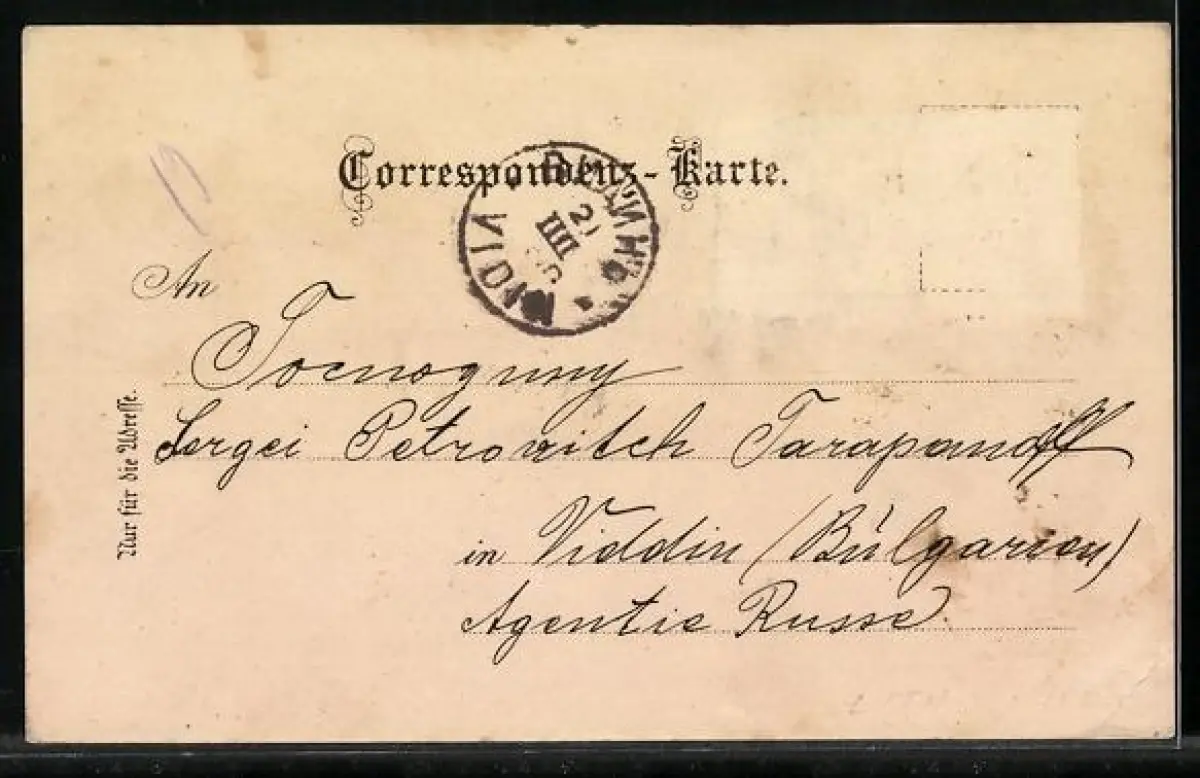 Correspondenz-Karte.
ВИДИНЪ
21
III
VIDIN
An
Господину
Sergei Petrovitch Tarapanoff
in Viddin (Bulgarien)
Agentie Russe
Nur für die Adresse.